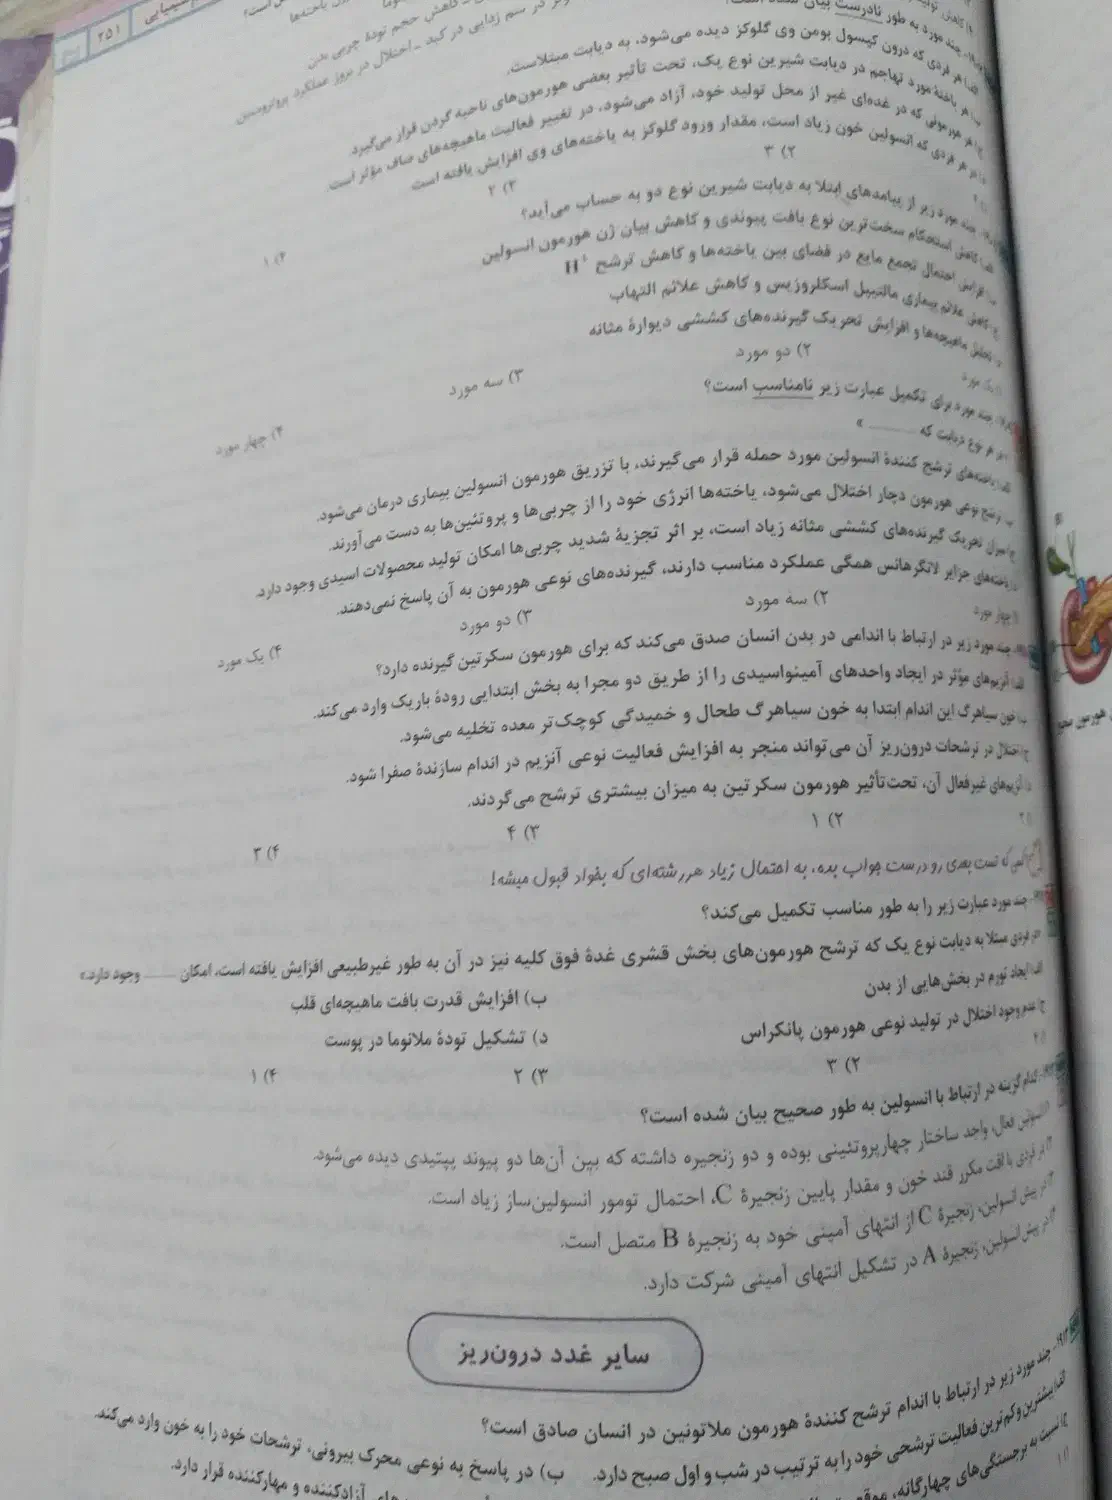 ۲۵۱
کاهش حجم تودهٔ چربی بدن
سم زدایی در کبد - اختلال در بروز عملکرد پروترومبین
چند مورد به طور نادرست بیان شده است؟
الف) هر فردی که درون کپسول بومن وی گلوکز دیده می‌شود، به دیابت مبتلاست.
ب) هر یاختهٔ مورد تهاجم در دیابت شیرین نوع یک، تحت تأثیر بعضی هورمون‌های ناحیه گردن قرار می‌گیرد.
ج) هر هورمونی که در غده‌ای غیر از محل تولید خود، آزاد می‌شود، در تغییر فعالیت ماهیچه‌های صاف مؤثر است.
د) در هر فردی که انسولین خون زیاد است، مقدار ورود گلوکز به یاخته‌های وی افزایش یافته است
۲) ۳
۳) ۲
۴) ۱
چند مورد زیر از پیامدهای ابتلا به دیابت شیرین نوع دو به حساب می‌آید؟
الف) کاهش استحکام سخت‌ترین نوع بافت پیوندی و کاهش بیان ژن هورمون انسولین
ب) افزایش احتمال تجمع مایع در فضای بین یاخته‌ها و کاهش ترشح H⁺
ج) کاهش علائم بیماری مالتیپل اسکلروزیس و کاهش علائم التهاب
د) تحلیل ماهیچه‌ها و افزایش تحریک گیرنده‌های کششی دیوارهٔ مثانه
۱) یک مورد
۲) دو مورد
۳) سه مورد
۴) چهار مورد
چند مورد برای تکمیل عبارت زیر نامناسب است؟
«در هر نوع دیابت که ........ »
الف) یاخته‌های ترشح کنندهٔ انسولین مورد حمله قرار می‌گیرند، با تزریق هورمون انسولین بیماری درمان می‌شود.
ب) ترشح نوعی هورمون دچار اختلال می‌شود، یاخته‌ها انرژی خود را از چربی‌ها و پروتئین‌ها به دست می‌آورند.
ج) میزان تحریک گیرنده‌های کششی مثانه زیاد است، بر اثر تجزیهٔ شدید چربی‌ها امکان تولید محصولات اسیدی وجود دارد.
د) یاخته‌های جزایر لانگرهانس همگی عملکرد مناسب دارند، گیرنده‌های نوعی هورمون به آن پاسخ نمی‌دهند.
۱) چهار مورد
۲) سه مورد
۳) دو مورد
۴) یک مورد
چند مورد زیر در ارتباط با اندامی در بدن انسان صدق می‌کند که برای هورمون سکرتین گیرنده دارد؟
الف) آنزیم‌های مؤثر در ایجاد واحدهای آمینواسیدی را از طریق دو مجرا به بخش ابتدایی رودهٔ باریک وارد می‌کند.
ب) خون سیاهرگ این اندام ابتدا به خون سیاهرگ طحال و خمیدگی کوچک‌تر معده تخلیه می‌شود.
ج) اختلال در ترشحات درون‌ریز آن می‌تواند منجر به افزایش فعالیت نوعی آنزیم در اندام سازندهٔ صفرا شود.
د) آنزیم‌های غیرفعال آن، تحت‌تأثیر هورمون سکرتین به میزان بیشتری ترشح می‌گردند.
۱) ۲
۲) ۱
۳) ۴
۴) ۳
کسی که تست بعدی رو درست جواب بده، به احتمال زیاد هر رشته‌ای که بخواد قبول میشه!
چند مورد عبارت زیر را به طور مناسب تکمیل می‌کند؟
«در فردی مبتلا به دیابت نوع یک که ترشح هورمون‌های بخش قشری غدهٔ فوق کلیه نیز در آن به طور غیرطبیعی افزایش یافته است، امکان ........ وجود دارد.»
الف) ایجاد تورم در بخش‌هایی از بدن
ب) افزایش قدرت بافت ماهیچه‌ای قلب
ج) عدم وجود اختلال در تولید نوعی هورمون پانکراس
د) تشکیل تودهٔ ملانوما در پوست
۱) ۴
۲) ۳
۳) ۲
۴) ۱
کدام گزینه در ارتباط با انسولین به طور صحیح بیان شده است؟
۱) انسولین فعال، واجد ساختار چهارپروتئینی بوده و دو زنجیره داشته که بین آن‌ها دو پیوند پپتیدی دیده می‌شود.
۲) در فردی با افت مکرر قند خون و مقدار پایین زنجیرهٔ C، احتمال تومور انسولین‌ساز زیاد است.
۳) در پیش انسولین، زنجیرهٔ C از انتهای آمینی خود به زنجیرهٔ B متصل است.
۴) در پیش انسولین، زنجیرهٔ A در تشکیل انتهای آمینی شرکت دارد.
سایر غدد درون‌ریز
۱۹۱۴- چند مورد زیر در ارتباط با اندام ترشح کنندهٔ هورمون ملاتونین در انسان صادق است؟
الف) بیشترین و کم‌ترین فعالیت ترشحی خود را به ترتیب در شب و اول صبح دارد.
ب) در پاسخ به نوعی محرک بیرونی، ترشحات خود را به خون وارد می‌کند.
ج) نسبت به برجستگی‌های چهارگانه،
آزادکننده و مهارکننده قرار دارد.
هورمون